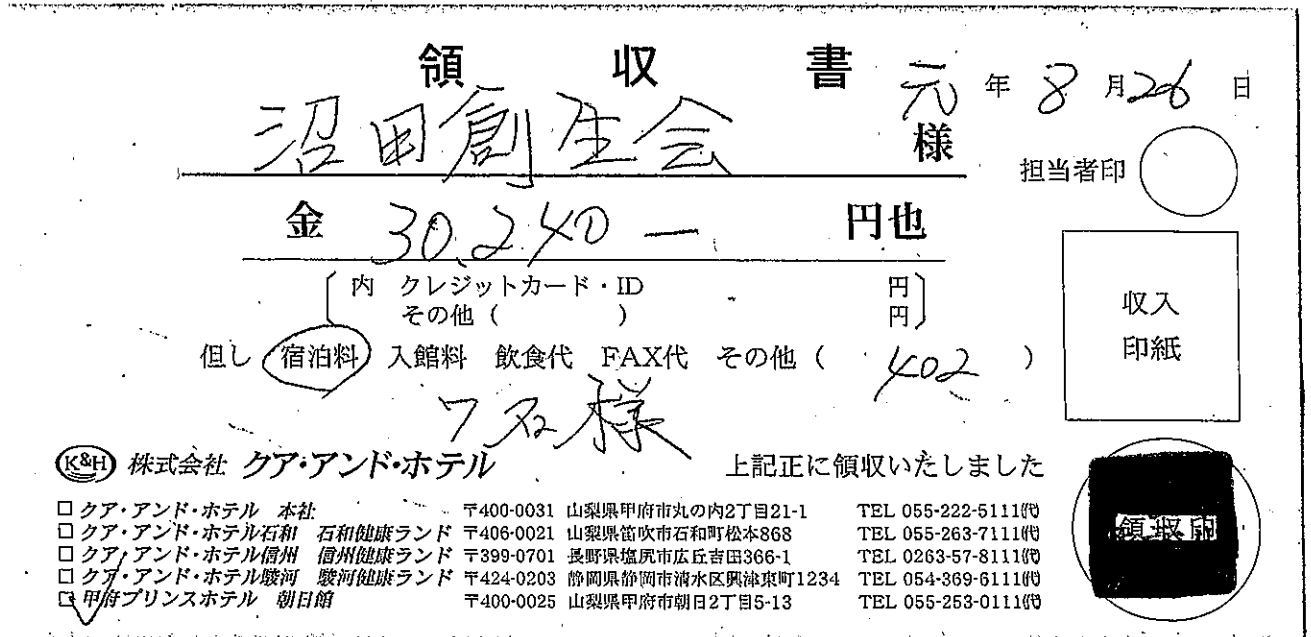 領収書
元年8月26日
沼田創生会 様
担当者印
金 30,240 ー 円也
内 クレジットカード・ID 円
その他 ( ) 円
収入
印紙
但し 宿泊料 入館料 飲食代 FAX代 その他 ( 402 )
7名様
K&H 株式会社 クア・アンド・ホテル 上記正に領収いたしました
□ クア・アンド・ホテル 本社 〒400-0031 山梨県甲府市丸の内2丁目21-1 TEL 055-222-5111㈹
□ クア・アンド・ホテル石和 石和健康ランド 〒406-0021 山梨県笛吹市石和町松本868 TEL 055-263-7111㈹
□ クア・アンド・ホテル信州 信州健康ランド 〒399-0701 長野県塩尻市広丘吉田366-1 TEL 0263-57-8111㈹
□ クア・アンド・ホテル駿河 駿河健康ランド 〒424-0203 静岡県静岡市清水区興津東町1234 TEL 054-369-6111㈹
□ 甲府プリンスホテル 朝日館 〒400-0025 山梨県甲府市朝日2丁目5-13 TEL 055-253-0111㈹
領収印